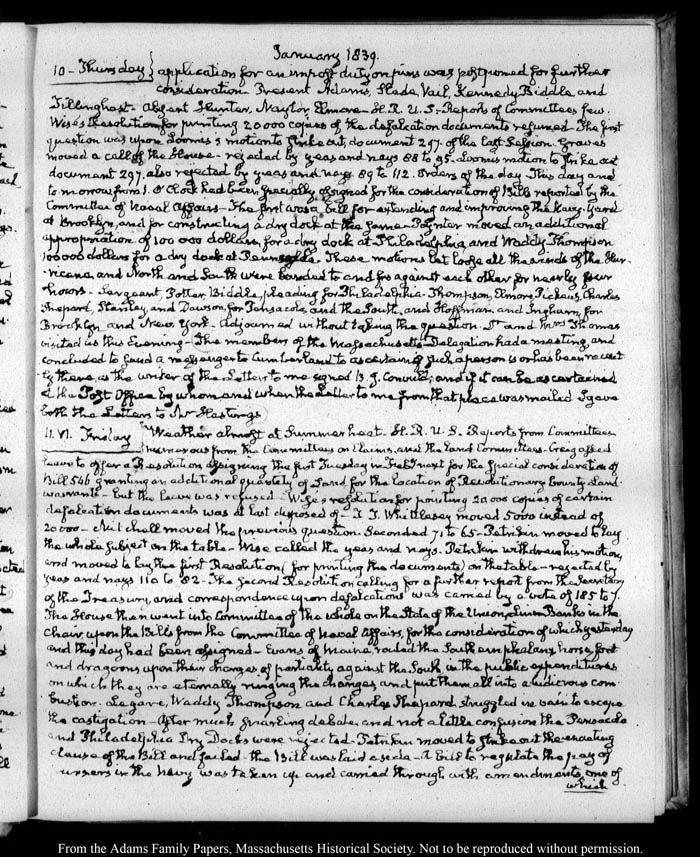 January 1839.
10 - Thursday } application for an impost duty on pins was postponed for further
consideration. Present Adams, Slade, Vail, Kennedy Biddle and
Tillinghast. Absent Hunter, Naylor Elmore - H. R. U. S. Reports of Committees few.
Wise's Resolution for printing 20000 copies of the defalcation documents resumed - The first
question was upon Loomis's motion to strike out, document 297. of the last Session. Graves
moved a call of the House - rejected by yeas and nays 88 to 95. Loomis motion to strike out
document 297. also rejected by yeas and nays. 89 to 112. Orders of the day - This day and
to morrow from 1. O'Clock had been specially assigned for the consideration of Bills reported by the
Committee of Naval Affairs - The first was a bill for extending and improving the Navy-Yard
at Brooklyn, and for constructing a dry dock at the same Poynter moved an additional
appropriation of 100 000 dollars for a dry dock at Philadelphia, and Waddy Thompson
100 000 dollars for a dry dock at Pensacola. These motions let loose all the winds of the Hur-
ricane, and North and South were banded to and fro against each other for nearly four
hours - Sergeant, Potter, Biddle, pleading for Philadelphia - Thompson, Elmore, Pickens, Charles
Shepard, Stanley, and Dawson, for Pensacola and the South, and Hoffman, and Ingham, for
Brooklyn and New York - Adjourned without taking the question. Lt. and Mrs Thomas
visited us this Evening - The members of the Massachusetts Delegation had a meeting, and
concluded to send a messenger to Cumberland to ascertain if such a person is or has been recent-
ly there, as the writer of the Letter to me signed B. J. and if it can be ascertained
at the Post Office by whom and when the Letter to me from that place was mailed I gave
both the Letters to Mr Hastings
11. VI. Friday } Weather almost at Summer heat - H. R. U. S. Reports from Committees
numerous from the Committees on Claims, and the land Committees - Craig asked
leave to offer a Resolution assigning the first Tuesday in Feb'y next for the special consideration of
Bill 546 granting an additional quantity of Land for the location of Revolutionary bounty Land
warrants - but the leave was refused - Wise's resolution for printing 20 000 copies of certain
defalcation documents was at last disposed of - T. T. Whittlesey moved 5000 instead of
20000 - Mitchell moved the previous question. Seconded 71 to 65 - Petrikin moved to lay
the whole subject on the table - Wise called the yeas and nays. Petrikin withdrew his motion,
and moved to lay the first Resolution (for printing the documents) on the table - rejected by
yeas and nays 110 to 82 - The second Resolution calling for a further report from the Secretary
of the Treasury, and correspondence upon defalcations was carried by a vote of 185 to 7.
The House then went into Committee of the whole on the State of the Union, Linn Banks in the
Chair upon the Bills from the Committee of Naval Affairs, for the consideration of which yesterday
and this day had been assigned - Evans of Maine, routed the Southern phalanx, horse, foot
and dragoons upon their charges of partiality against the South in the public expenditures
on which they are eternally ringing the changes and put them all into a ludicrous com-
bustion. Legare, Waddy Thompson and Charles Shepard struggled in vain to escape
the castigation - After much snarling debate, and not a little confusion the Pensacola
and Philadelphia Dry Docks were rejected - Petrikin moved to strike out the enacting
clause of the Bill and failed - the Bill was laid aside - A bill to regulate the pay of
pursers in the Navy was taken up and carried through with amendments, one of
which
From the Adams Family Papers, Massachusetts Historical Society. Not to be reproduced without permission.